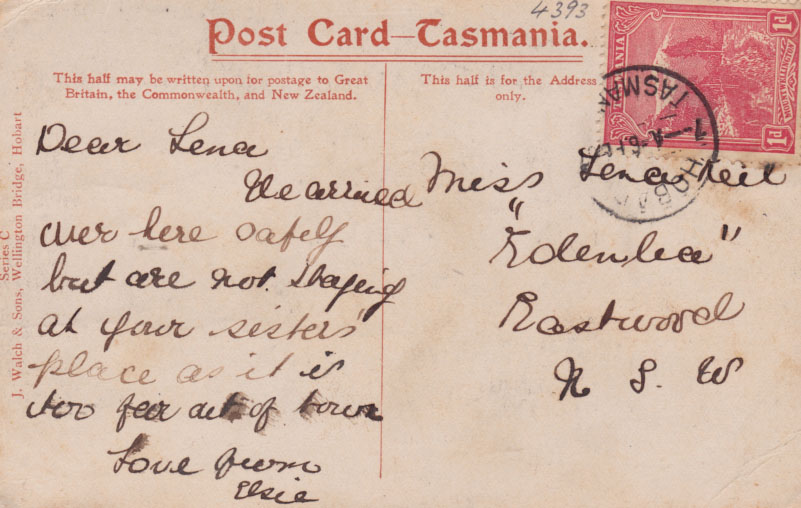 4393
Post Card—Tasmania.
This half may be written upon for postage to Great
Britain, the Commonwealth, and New Zealand.
This half is for the Address
only.
Series C
J. Walch & Sons, Wellington Bridge, Hobart
Dear Lena
We arrived
over here safely
but are not staying
at your sisters'
place as it is
too far out of town
Love from
Elsie
Miss Lena
"Edenlea"
Eastwood
N S W
TASMANIA
1d
1d
HOBAR
TASMAN